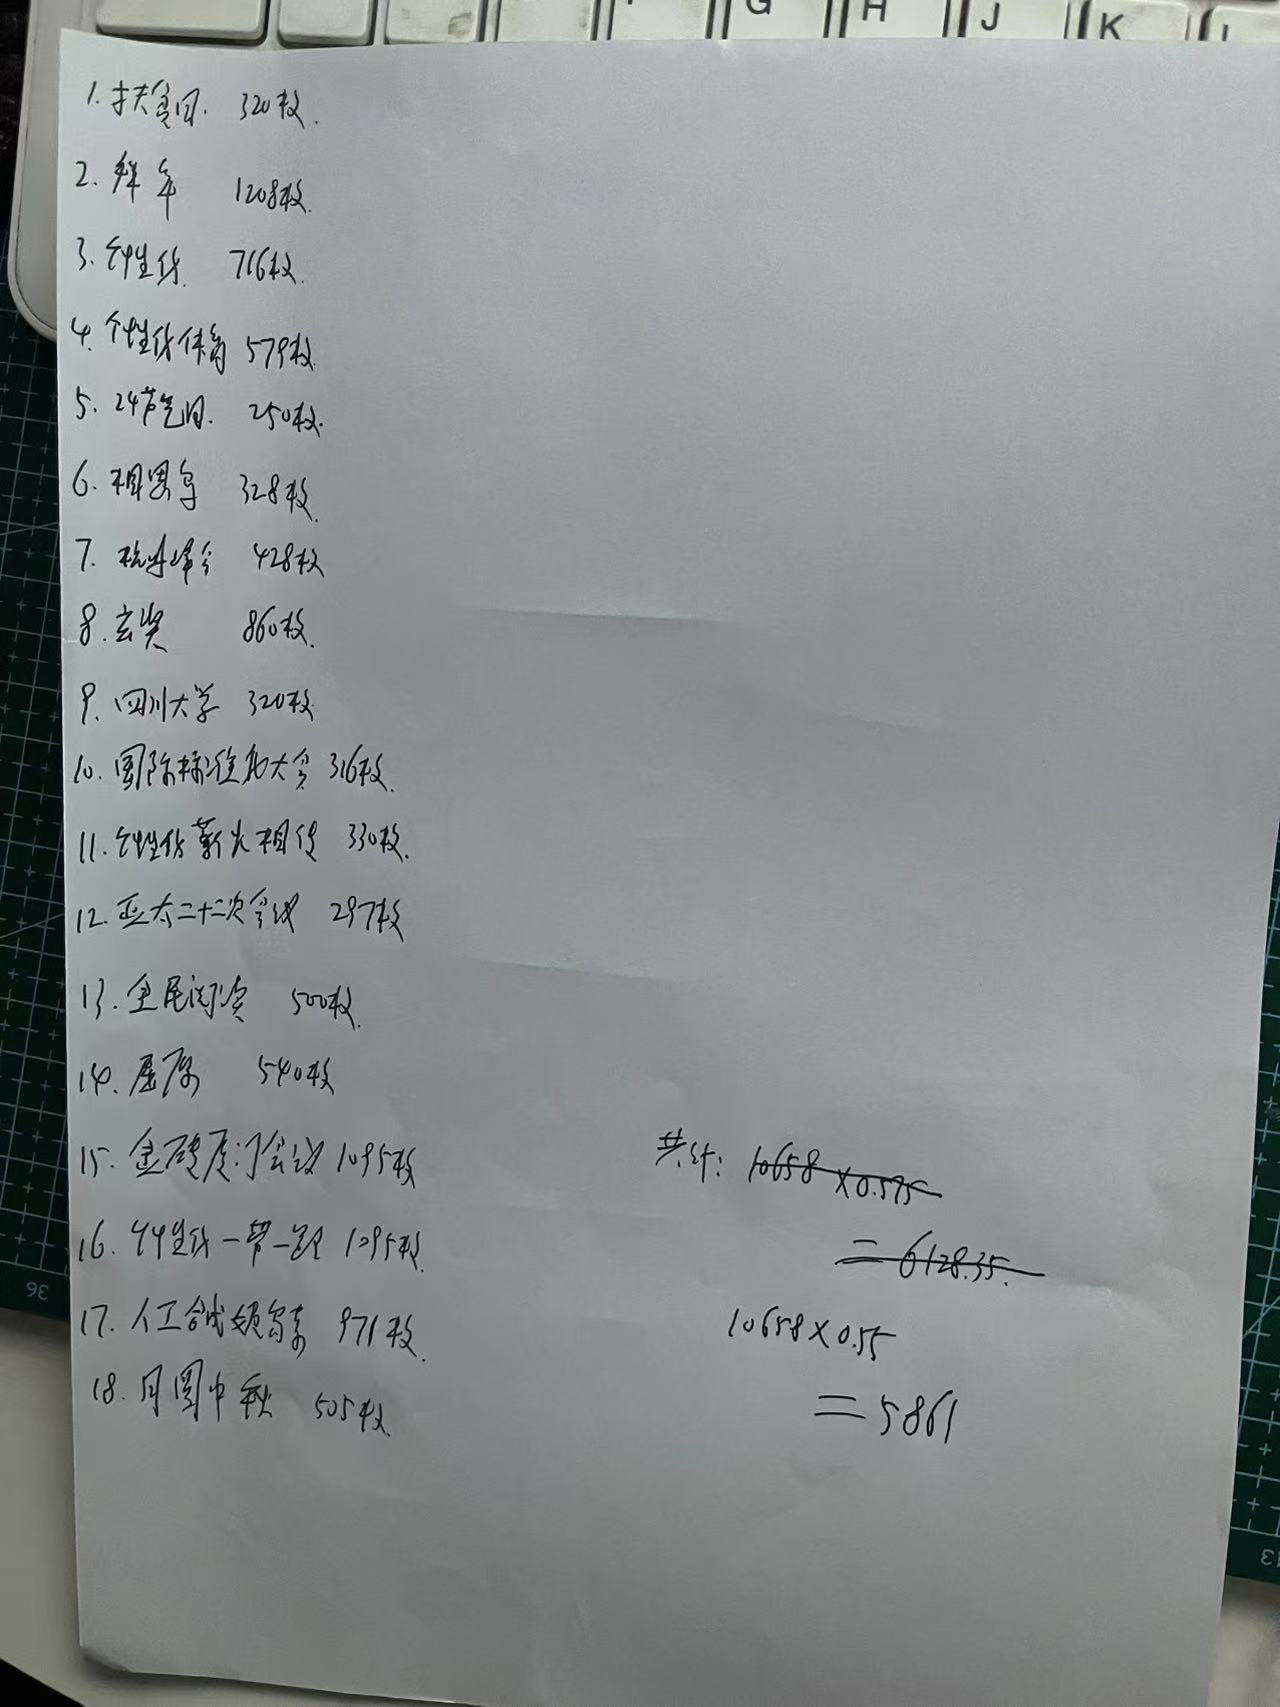 1. 扶贫日. 320枚.
2. 拜年 1208枚.
3. 个性化 716枚.
4. 个性化体育 579枚
5. 24节气日. 250枚.
6. 相思鸟 328枚.
7. 杭州峰会 428枚
8. 玄奘 860枚.
9. 四川大学 320枚
10. 国际标准化大会 316枚.
11. 个性化薪火相传 330枚.
12. 亚太二十二次会议 297枚
13. 全民阅读 500枚.
14. 屈原 540枚
15. 金砖厦门会议 1095枚
16. 个性化一带一路 1095枚.
17. 人工合成胰岛素 971枚.
18. 月圆中秋 505枚.
共计: 10658 ×0.575
=6128.35.
10658×0.55
=5861
G H J K
36
13